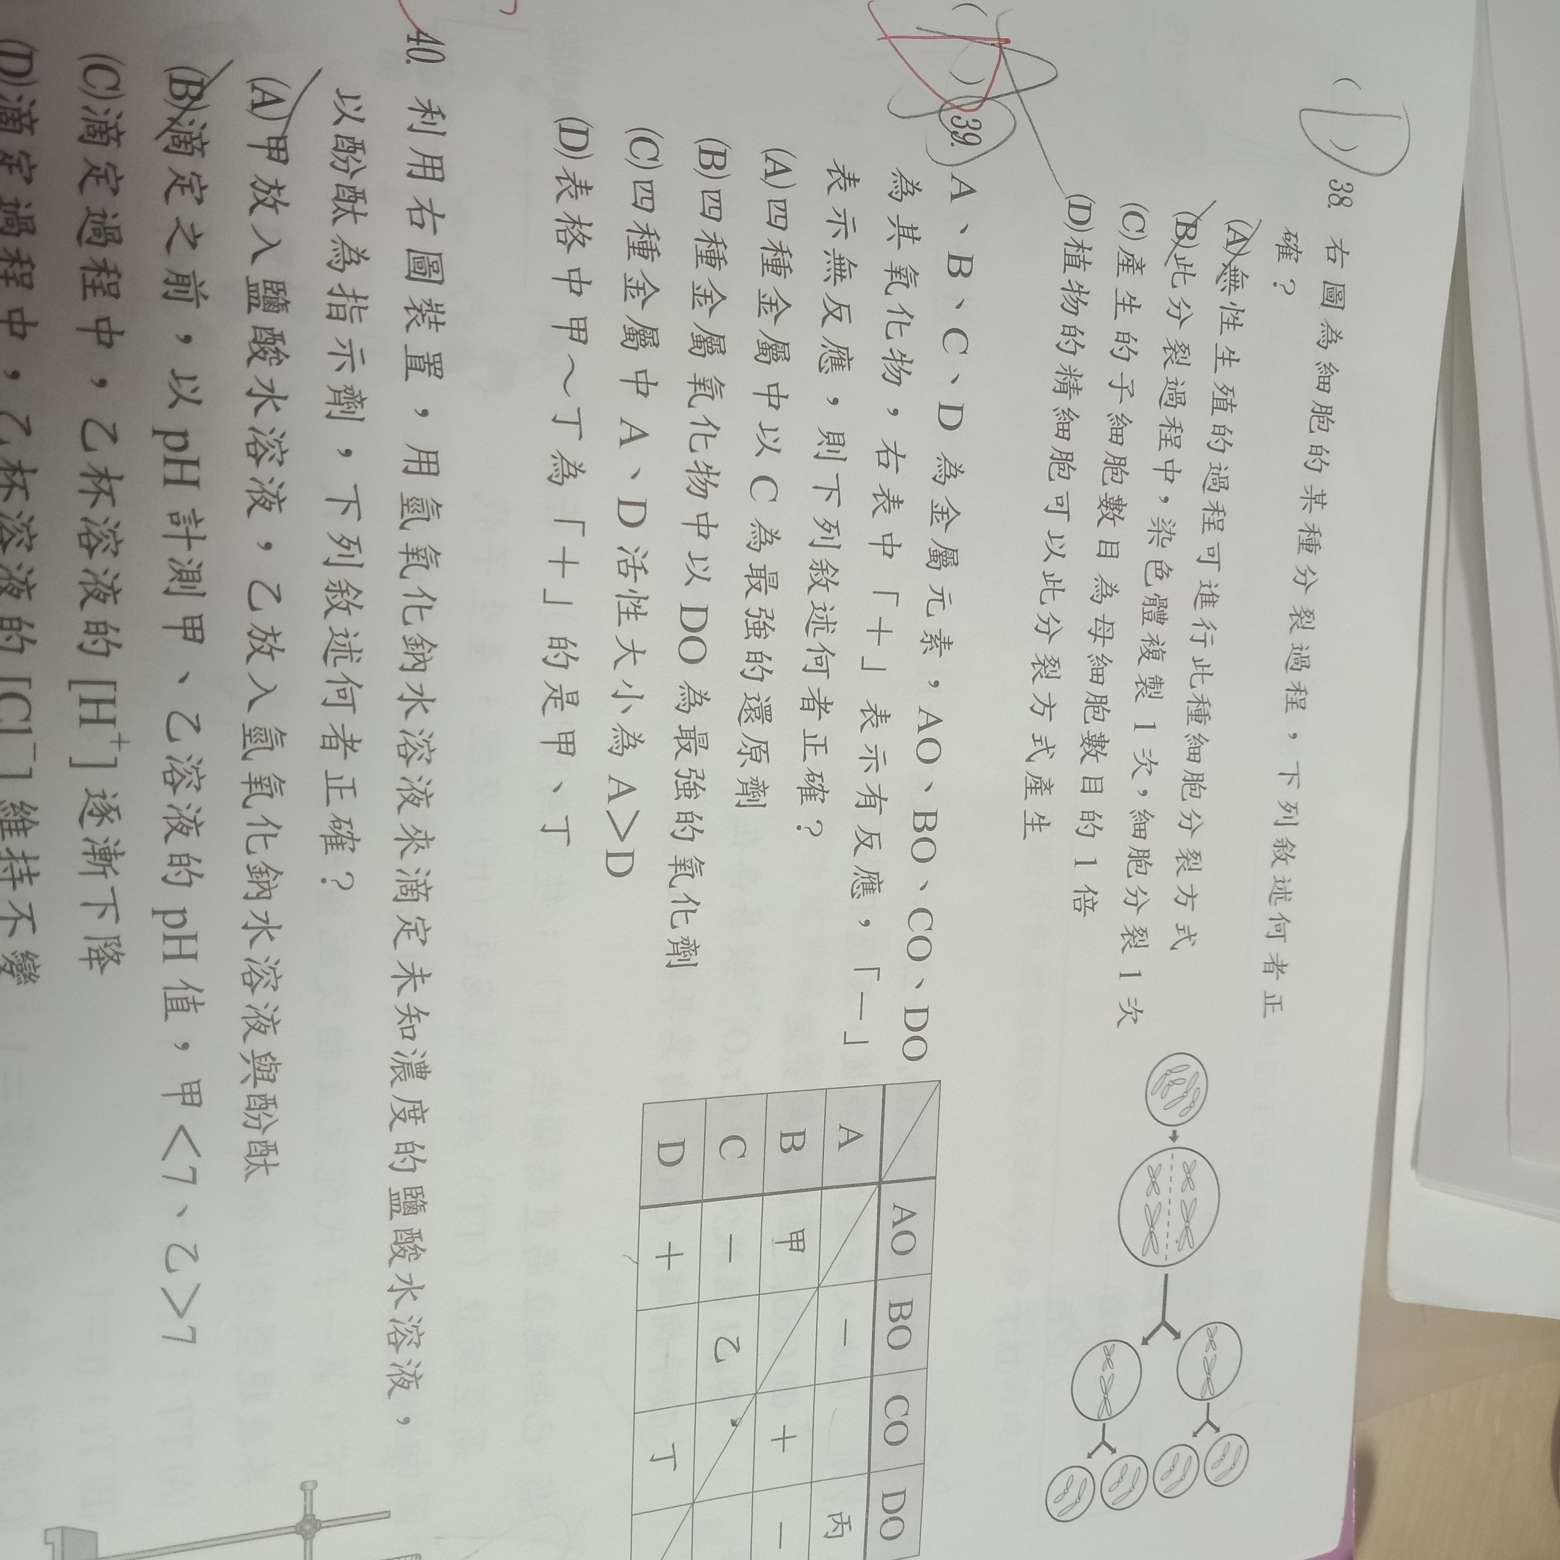 ( D ) 38. 右圖為細胞的某種分裂過程，下列敘述何者正
確？
(A)無性生殖的過程可進行此種細胞分裂方式
(B)此分裂過程中，染色體複製 1 次，細胞分裂 1 次
(C)產生的子細胞數目為母細胞數目的 1 倍
(D)植物的精細胞可以此分裂方式產生
( ) 39. A、B、C、D 為金屬元素，AO、BO、CO、DO
為其氧化物，右表中「＋」表示有反應，「－」
表示無反應，則下列敘述何者正確？
(A)四種金屬中以 C 為最強的還原劑
(B)四種金屬氧化物中以 DO 為最強的氧化劑
(C)四種金屬中 A、D 活性大小為 A＞D
(D)表格中甲～丁為「＋」的是甲、丁
AO BO CO DO
A － 丙
B 甲 ＋ －
C － 乙
D ＋ 丁
40. 利用右圖裝置，用氫氧化鈉水溶液來滴定未知濃度的鹽酸水溶液，
以酚酞為指示劑，下列敘述何者正確？
(A)甲放入鹽酸水溶液，乙放入氫氧化鈉水溶液與酚酞
(B)滴定之前，以 pH 計測甲、乙溶液的 pH 值，甲＜7、乙＞7
(C)滴定過程中，乙杯溶液的 [H⁺] 逐漸下降
(D)滴定過程中，乙杯溶液的 [Cl⁻] 維持不變